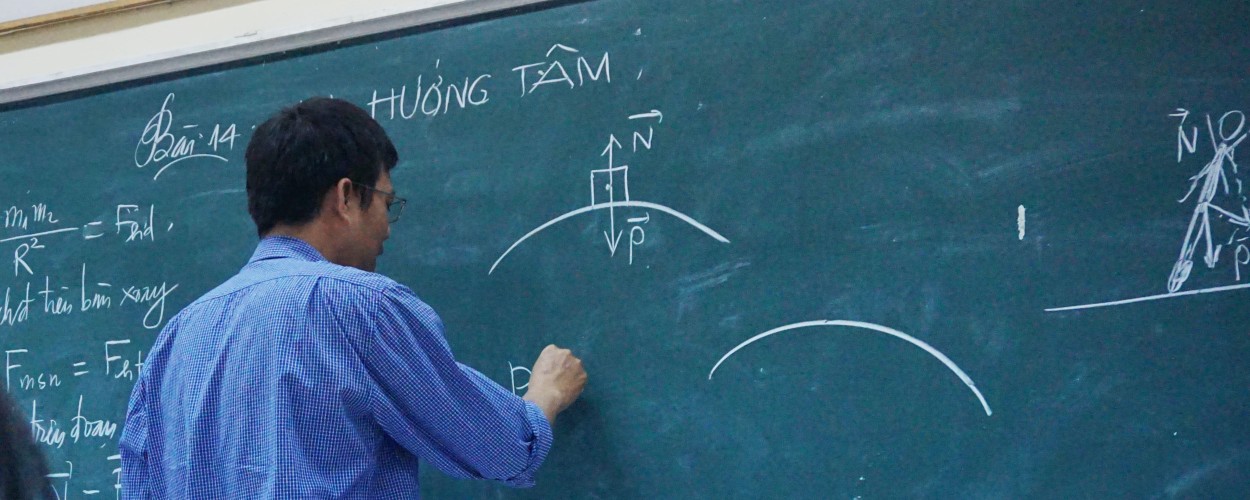 Bài 14 HƯỚNG TÂM
N
P
N
P
m₁m₂
R² = Fhd
trên bàn xoay
Fmsn = Fht
trên đoạn
N
P